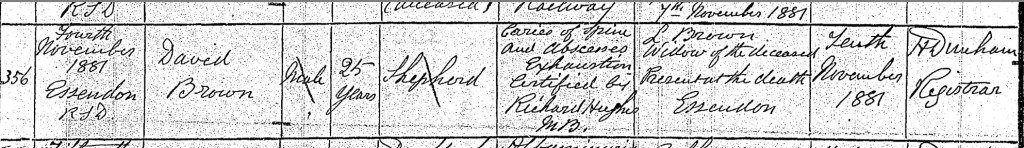 R.S.D.
(deceased)
Railway
7th November 1881
356
Fourth
November
1881
Essendon
R.S.D.
David
Brown
Male
25
Years
Shepherd
Caries of Spine
and Abscesses
Exhaustion
Certified by
Richard Hughes
M.B.
L. Brown
Widow of the deceased
Present at the death
Essendon
Tenth
November
1881
Registrar